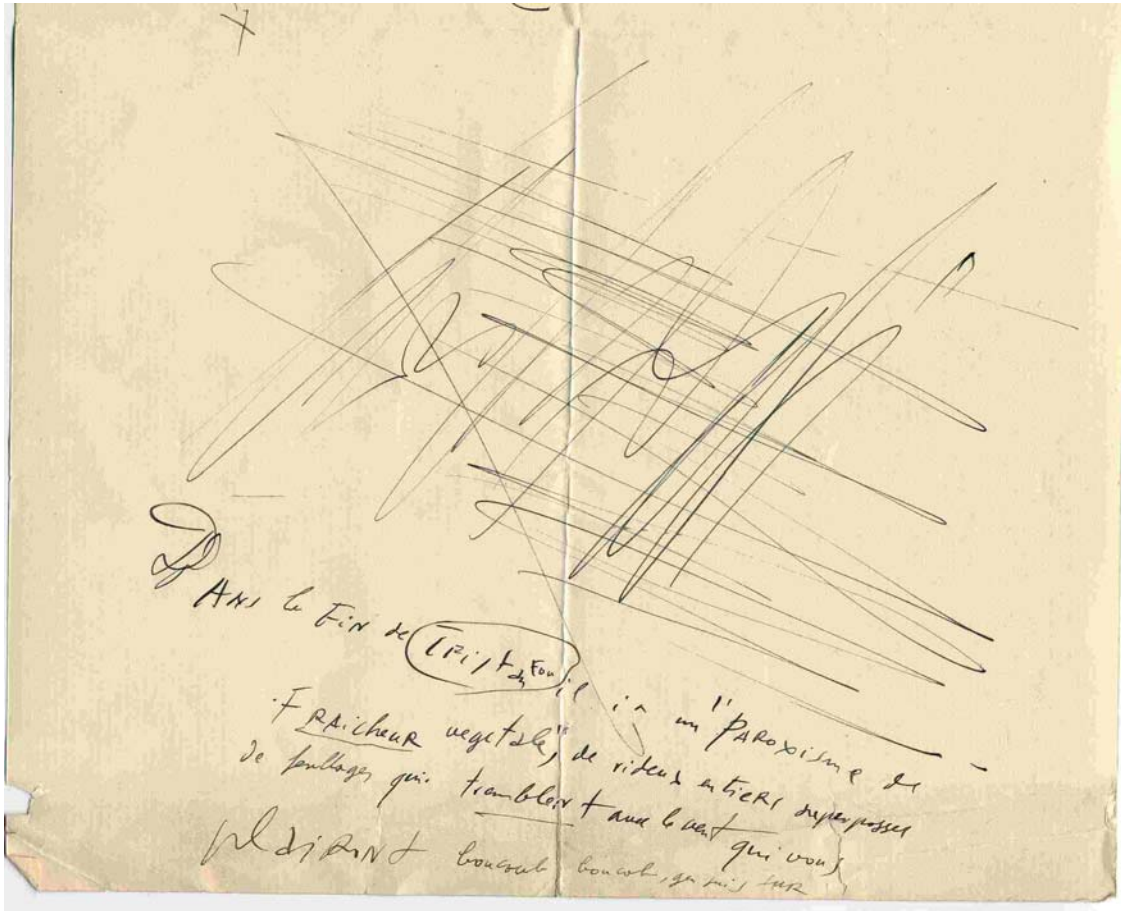 DANS le FiN de TRiStAn Fou il i a un "PAROXiSme de
FRAicheuR vegetale", de rideaux entieRs superposses
de feullages qui tremblent avec le vent qui vous
plaiRont boucoub boucoub, j'en suis suR